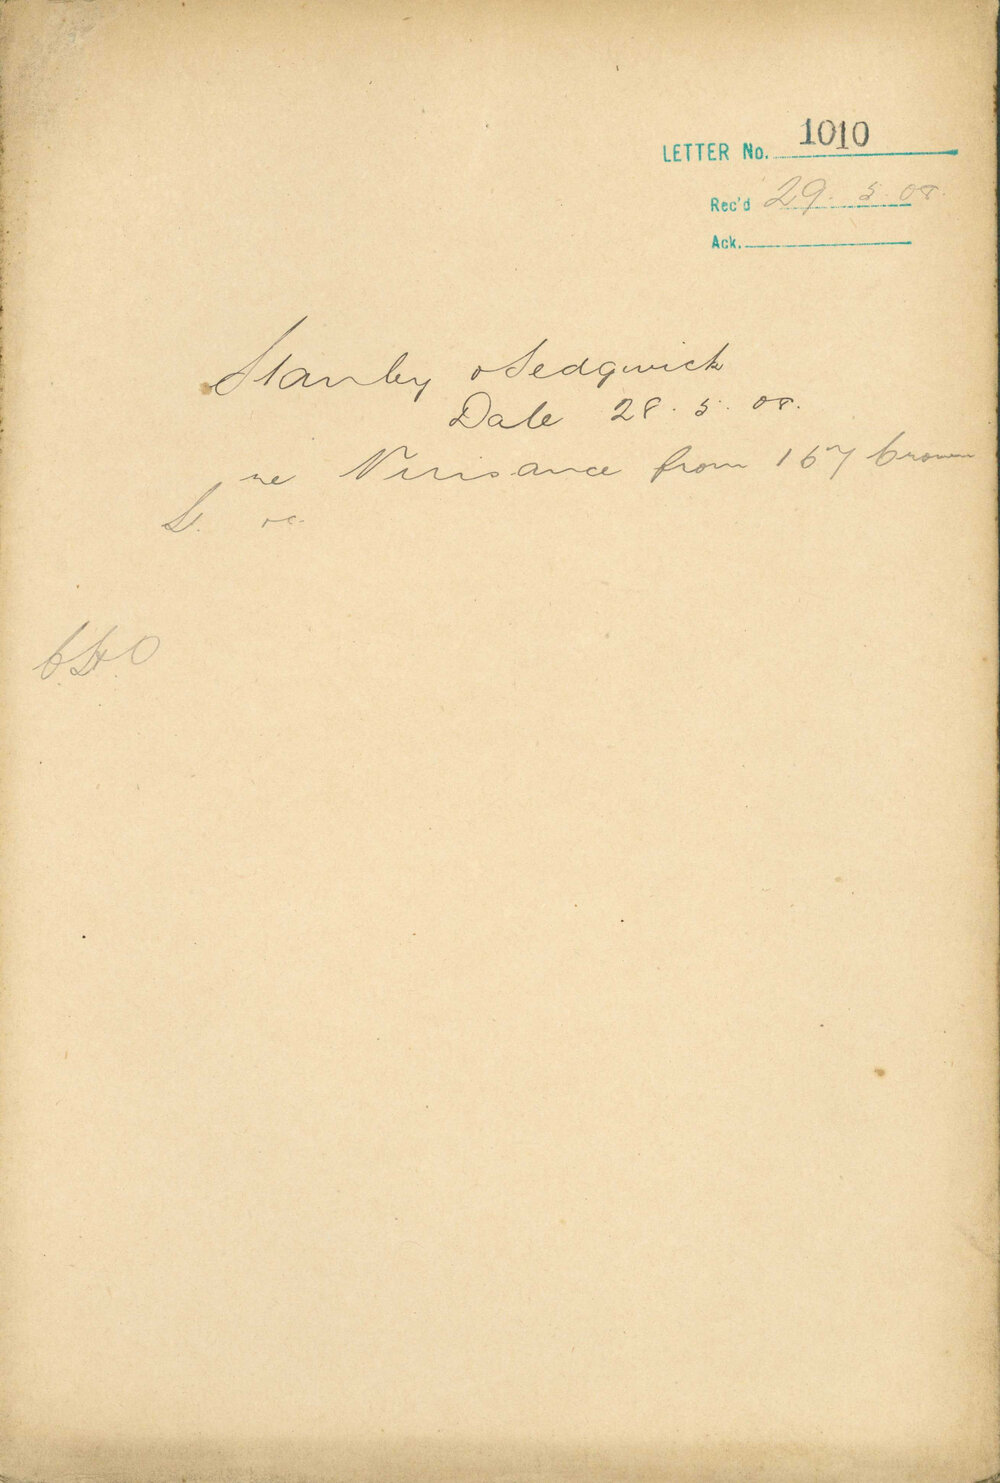 LETTER No. 1010
Rec'd 29. 5. 08.
Ack.
Stanley Sedgwick
Date 28. 5. 08.
re Nuisance from 167 Crown
St. &c.
C.H.O